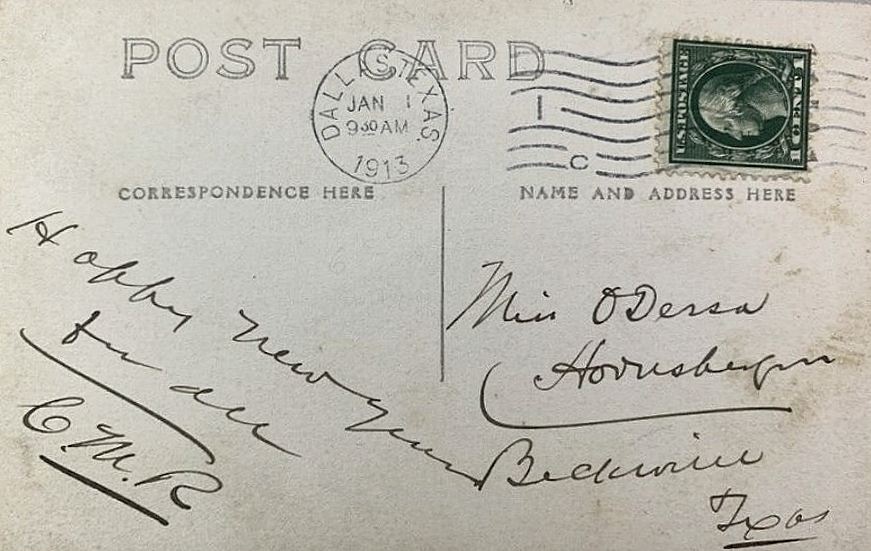 POST CARD
DALLAS, TEXAS.
JAN 1
9 30 AM
1913
1
C
U.S. POSTAGE
1 CENT 1
CORRESPONDENCE HERE
NAME AND ADDRESS HERE
Happy New Year
for all
C.M.R
Miss ODessa
Beckville
Texas